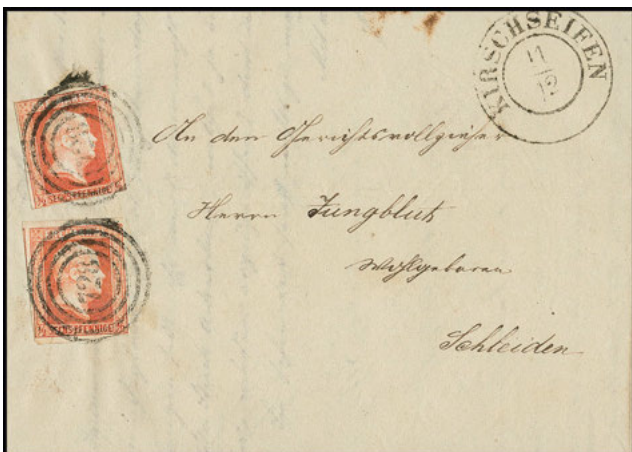 KIRSCHSEIFEN
11/12
An den Gerichtsvollzieher
Herrn Jungbluth
Wohlgeboren
Schleiden
728
½ SECHSPFENNIGE ½
728
½ SECHSPFENNIGE ½